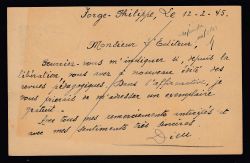 Forge-Philippe, Le 12-2-45.
Monsieur l'Editeur,
Pourriez-vous m'indiquer si, depuis la
libération, vous avez à nouveau édité des
revues pédagogiques? Dans l'affirmative, je
vous prierais de m'adresser un exemplaire
gratuit.
Avec tous mes remerciements anticipés et
avec mes sentiments très sincères.